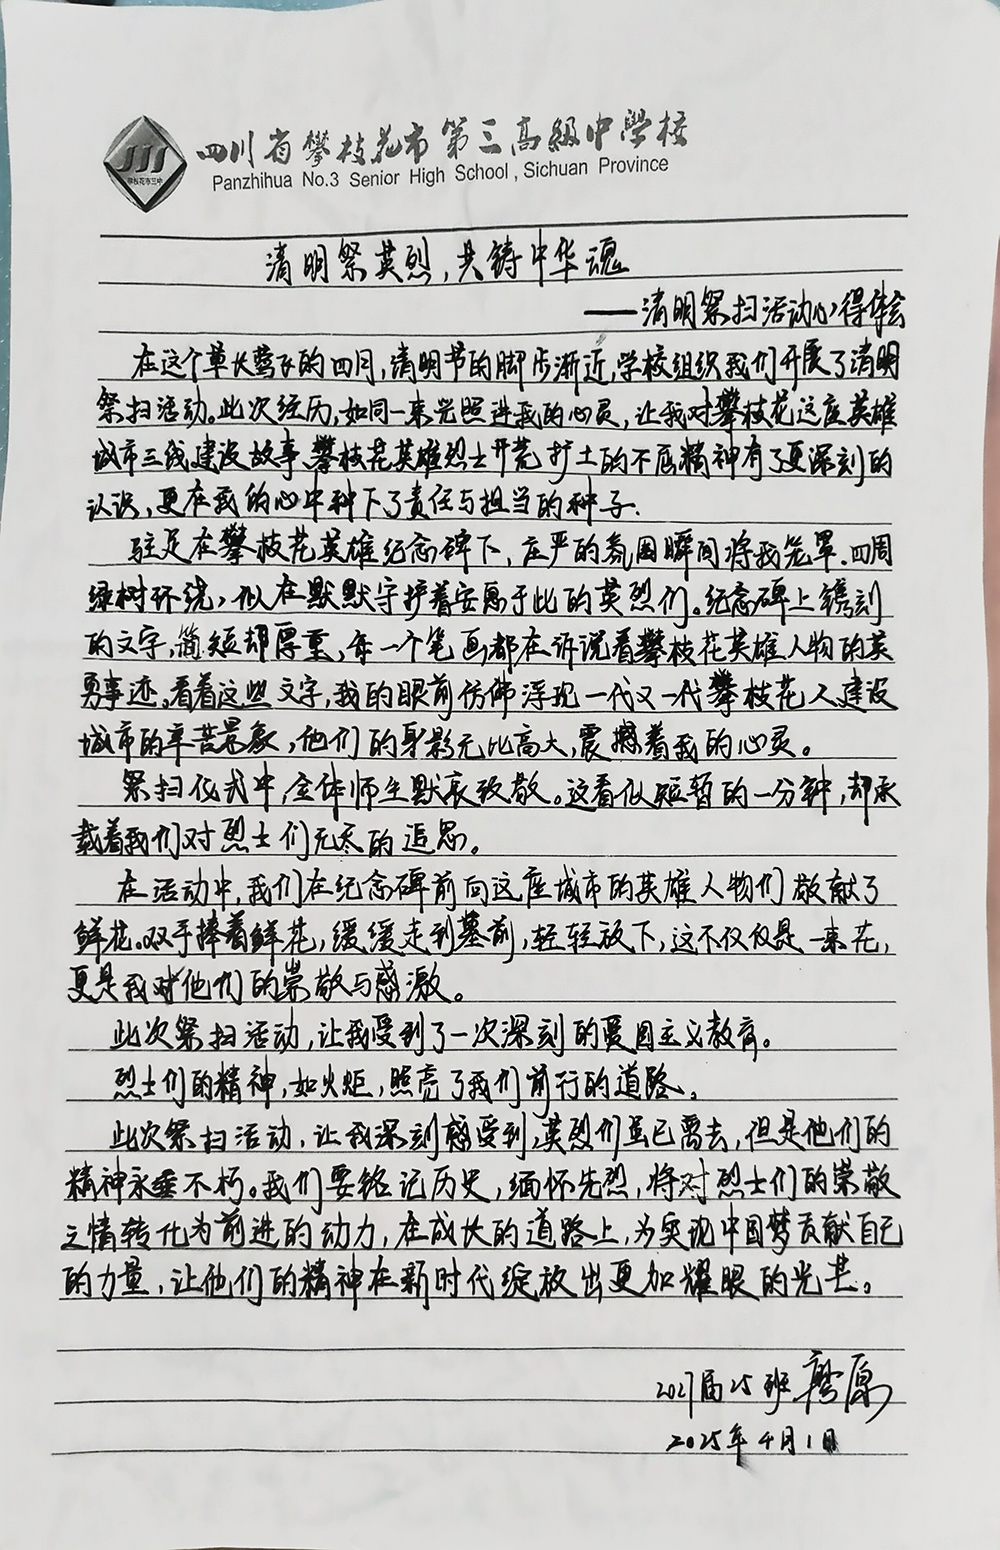 四川省攀枝花市第三高级中学校
Panzhihua No.3 Senior High School, Sichuan Province
攀枝花市三中
清明祭英烈,共铸中华魂
——清明祭扫活动心得体会
在这个草长莺飞的四月,清明节的脚步渐近,学校组织我们开展了清明
祭扫活动。此次经历,如同一束光照进我的心灵,让我对攀枝花这座英雄
城市三线建设故事、攀枝花英雄烈士开荒扩土的不屈精神有了更深刻的
认识,更在我的心中种下了责任与担当的种子.
驻足在攀枝花英雄纪念碑下,庄严的氛围瞬间将我笼罩.四周
绿树环绕,似在默默守护着安息于此的英烈们。纪念碑上镌刻
的文字,简短却厚重,每一个笔画都在诉说着攀枝花英雄人物的英
勇事迹。看着这些文字,我的眼前仿佛浮现一代又一代攀枝花人建设
城市的辛苦景象,他们的身影无比高大,震撼着我的心灵。
祭扫仪式中,全体师生默哀致敬。这看似短暂的一分钟,却承
载着我们对烈士们无尽的追思。
在活动中,我们在纪念碑前向这座城市的英雄人物们敬献了
鲜花。双手捧着鲜花,缓缓走到墓前,轻轻放下,这不仅仅是一束花,
更是我对他们的崇敬与感激。
此次祭扫活动,让我受到了一次深刻的爱国主义教育。
烈士们的精神,如火炬,照亮了我们前行的道路。
此次祭扫活动,让我深刻感受到,英烈们虽已离去,但是他们的
精神永垂不朽。我们要铭记历史,缅怀先烈,将对烈士们的崇敬
之情转化为前进的动力,在成长的道路上,为实现中国梦贡献自己
的力量,让他们的精神在新时代绽放出更加耀眼的光芒。
2027届25班 原
2025年4月1日